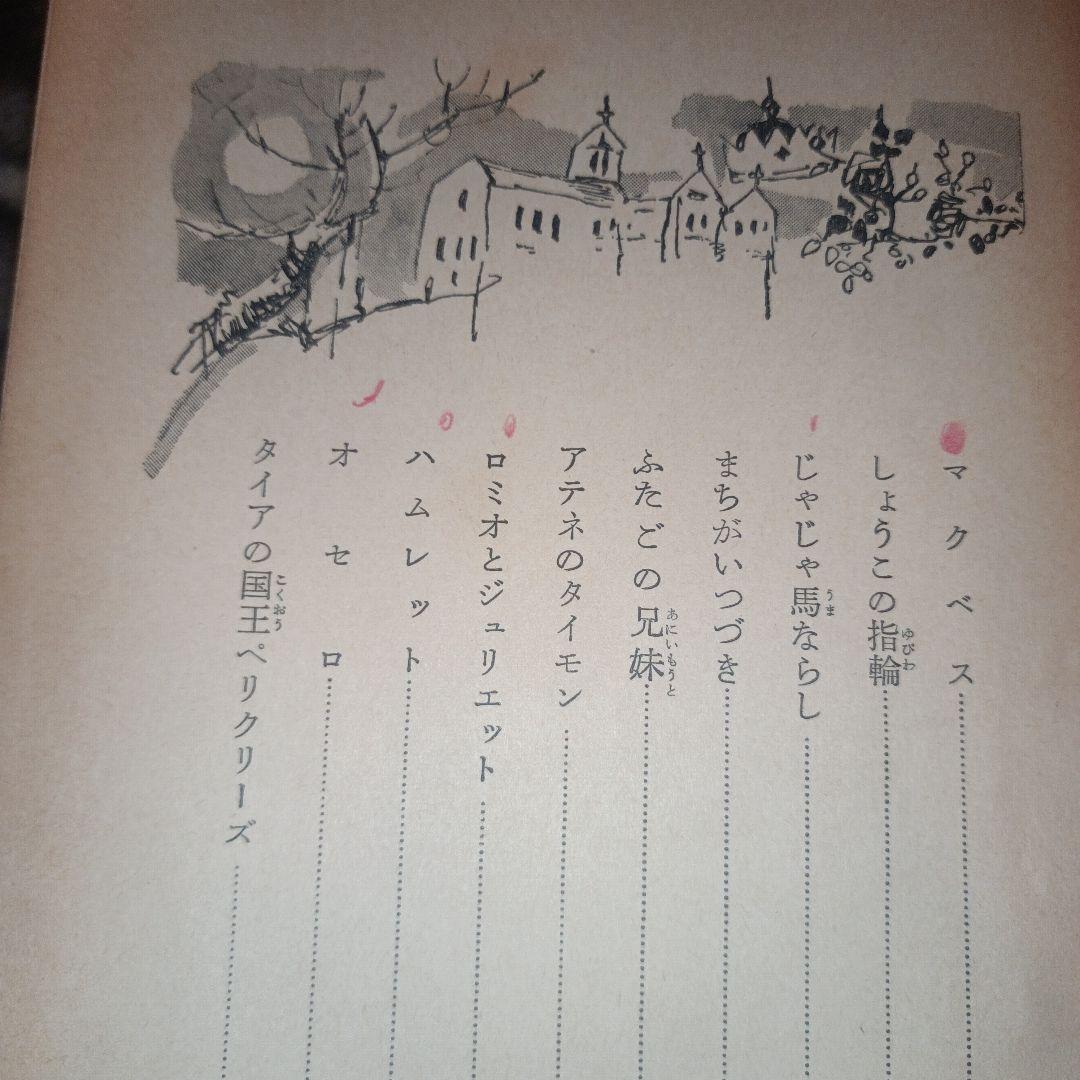 マクベス
しょうこの指輪
じゃじゃ馬ならし
まちがいつづき
ふたごの兄妹
アテネのタイモン
ロミオとジュリエット
ハムレット
オセロ
タイアの国王ペリクリーズ